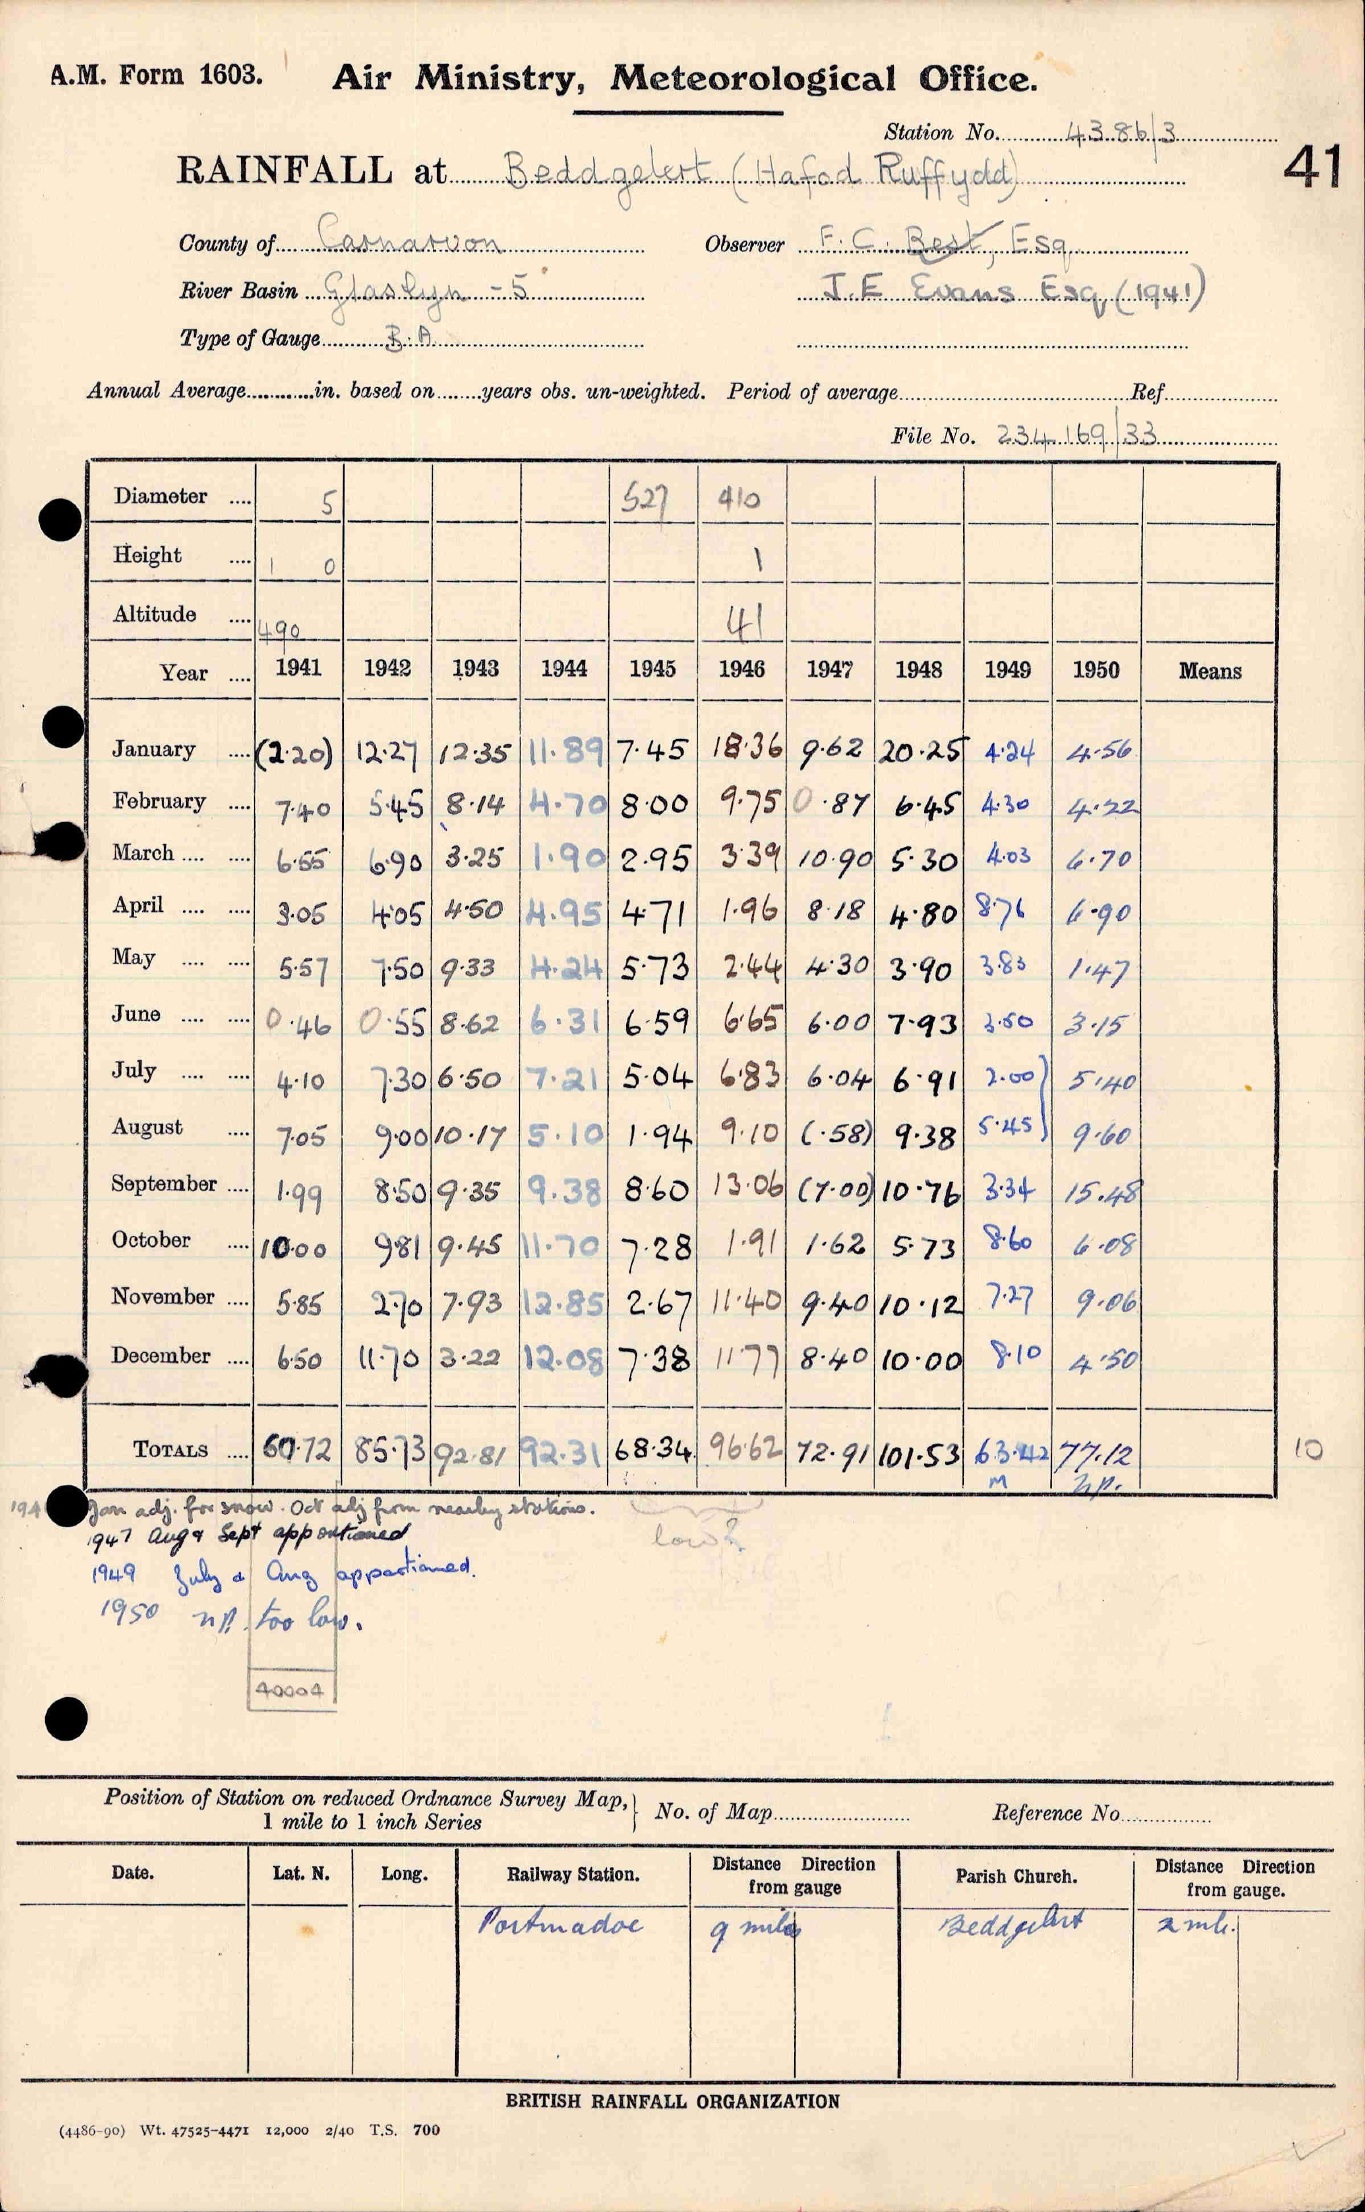 A.M. Form 1603. Air Ministry, Meteorological Office.
Station No. 4386/3
41
RAINFALL at Beddgelert (Hafod Ruffydd)
County of Carnarvon Observer F. C. Best, Esq.
River Basin Glaslyn - 5 J. E Evans Esq (1941)
Type of Gauge B.A.
Annual Average............in. based on........years obs. un-weighted. Period of average Ref
File No. 234169/33
Diameter .... 5 527 410
Height .... 1 0 1
Altitude .... 490 41
Year .... 1941 1942 1943 1944 1945 1946 1947 1948 1949 1950 Means
January .... (2.20) 12.27 12.35 11.89 7.45 18.36 9.62 20.25 4.24 4.56
February .... 7.40 5.45 8.14 4.70 8.00 9.75 0.87 6.45 4.30 4.22
March .... .... 6.55 6.90 3.25 1.90 2.95 3.39 10.90 5.30 4.03 6.70
April .... .... 3.05 4.05 4.50 4.95 4.71 1.96 8.18 4.80 8.76 6.90
May .... .... 5.57 7.50 9.33 4.24 5.73 2.44 4.30 3.90 3.83 1.47
June .... .... 0.46 0.55 8.62 6.31 6.59 6.65 6.00 7.93 3.50 3.15
July .... .... 4.10 7.30 6.50 7.21 5.04 6.83 6.04 6.91 2.00 5.40
August .... 7.05 9.00 10.17 5.10 1.94 9.10 (.58) 9.38 5.45 9.60
September .... 1.99 8.50 9.35 9.38 8.60 13.06 (7.00) 10.76 3.34 15.48
October .... 10.00 9.81 9.45 11.70 7.28 1.91 1.62 5.73 8.60 6.08
November .... 5.85 2.70 7.93 12.85 2.67 11.40 9.40 10.12 7.27 9.06
December .... 6.50 11.70 3.22 12.08 7.38 11.77 8.40 10.00 8.10 4.50
TOTALS .... 60.72 85.73 92.81 92.31 68.34 96.62 72.91 101.53 63.42 77.12 10
M np.
194 Jan adj. for snow. Oct adj from nearby stations.
1947 Aug & Sept apportioned low?
1949 July & Aug apportioned.
1950 np. too low.
40004
Position of Station on reduced Ordnance Survey Map, 1 mile to 1 inch Series No. of Map Reference No.
Date. Lat. N. Long. Railway Station. Distance Direction from gauge Parish Church. Distance Direction from gauge.
Portmadoc 9 miles Beddgelert 2 mls.
BRITISH RAINFALL ORGANIZATION
(4486-90) Wt. 47525-4471 12,000 2/40 T.S. 700